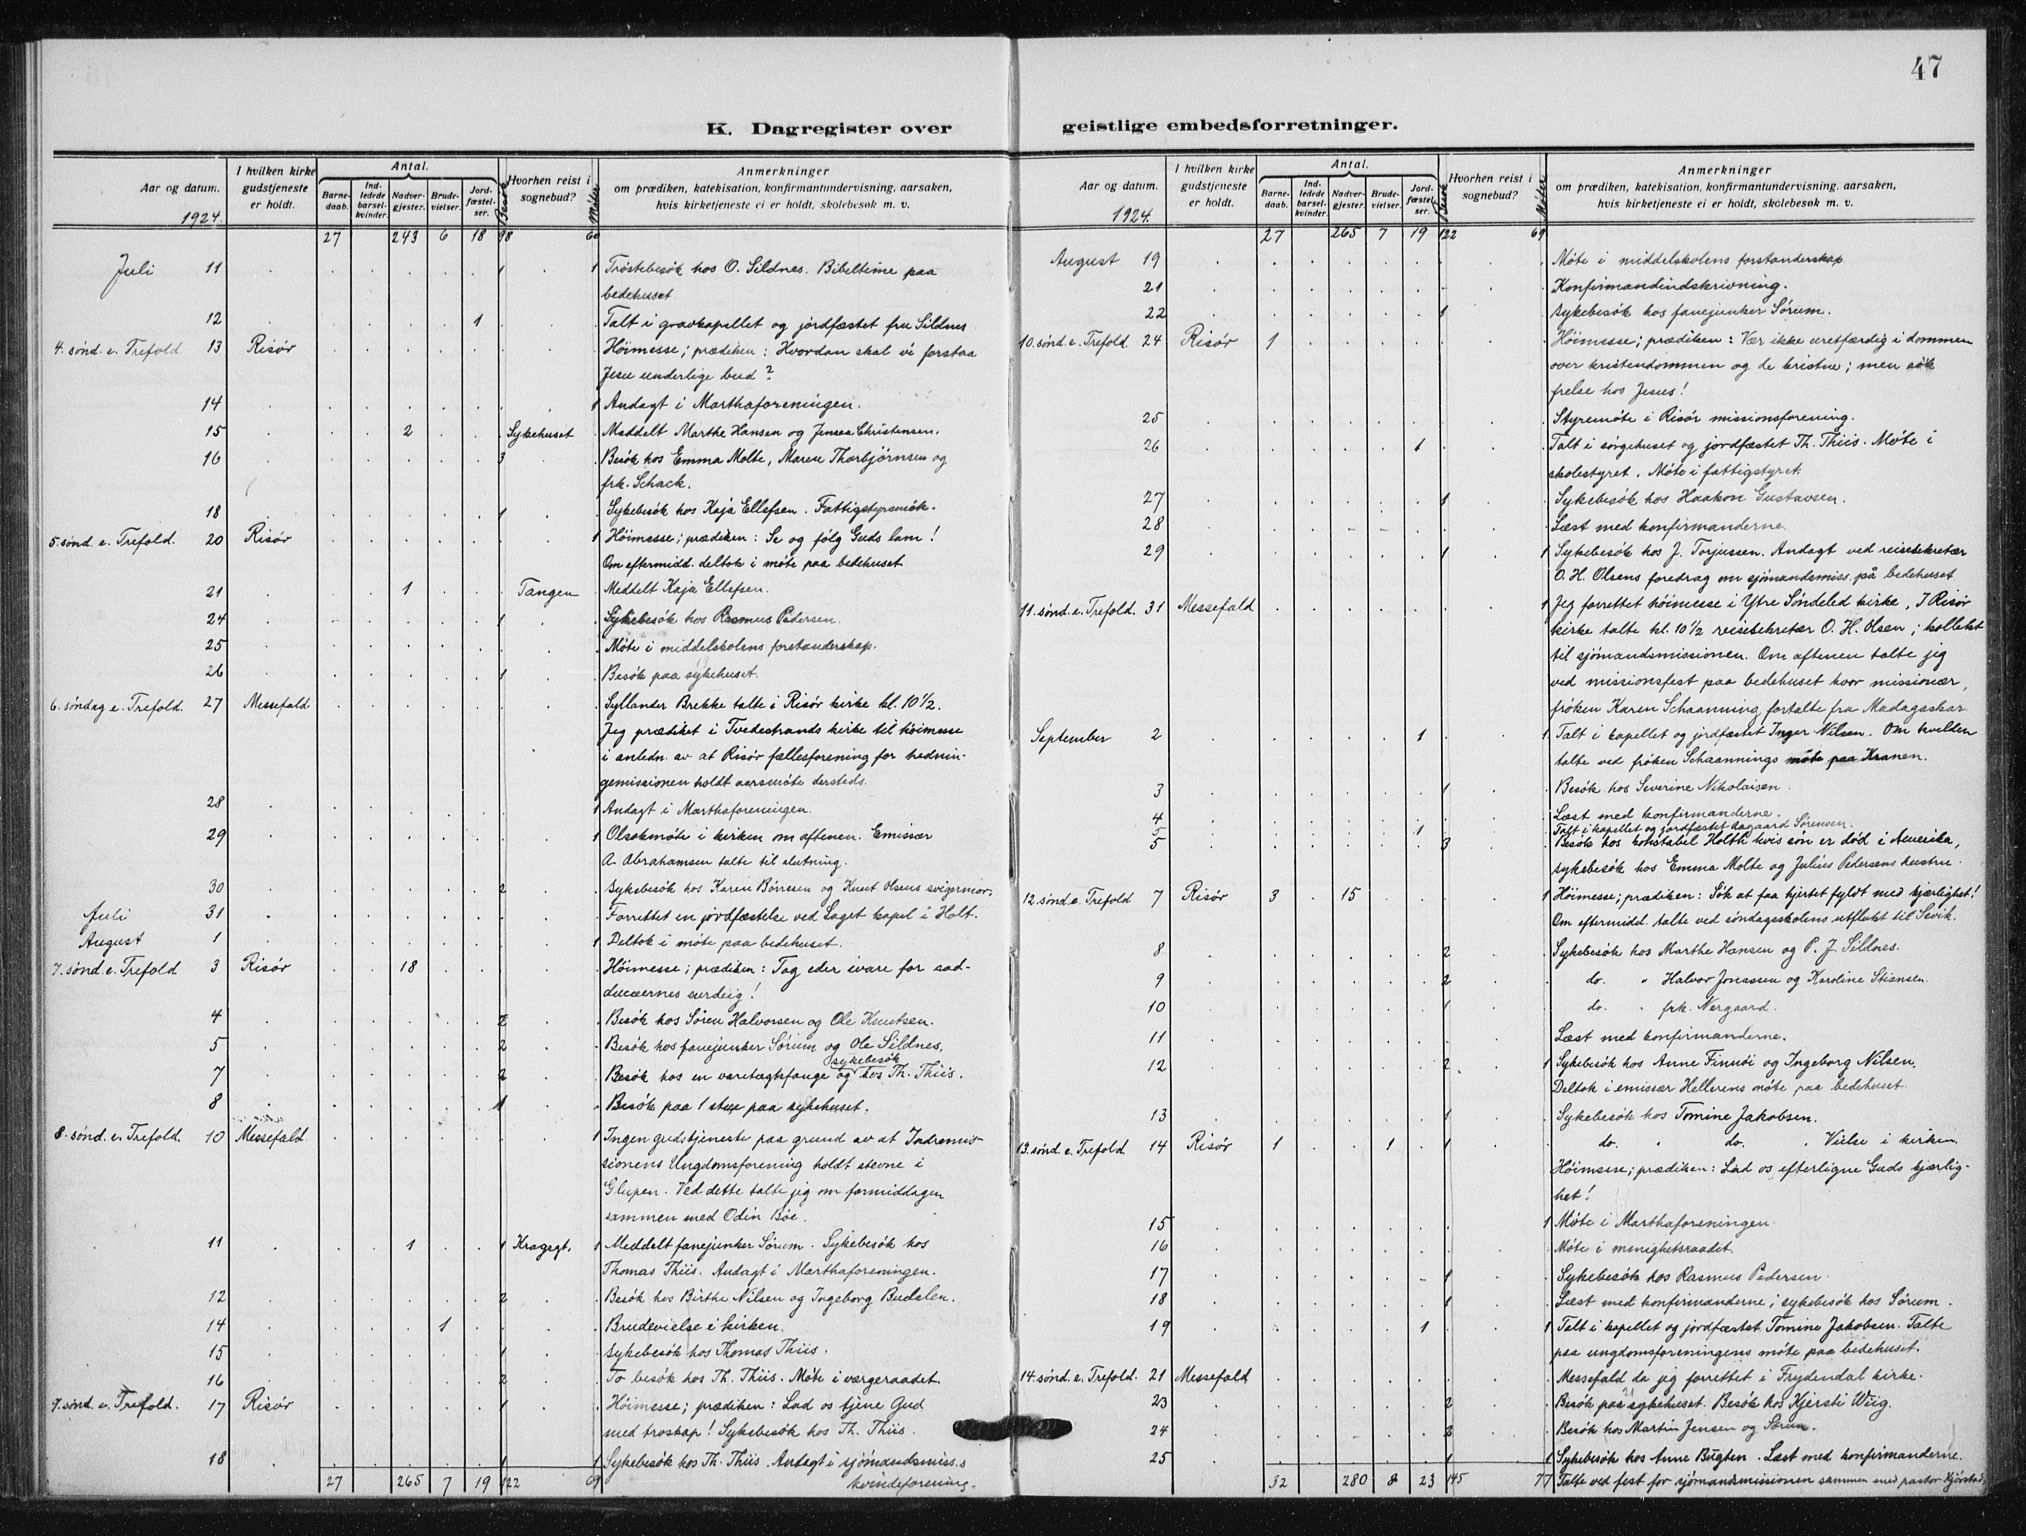 47
K. Dagregister over geistlige embedsforretninger.
Aar og datum. 1924.
I hvilken kirke gudstjeneste er holdt.
Antal.
Barne-daab. Ind-ledede barsel-kvinder. Nadver-gjester. Brude-vielser. Jord-fæstel-ser. Besøk
Hvorhen reist i sognebud? Møter
Anmerkninger
om prædiken, katekisation, konfirmantundervisning, aarsaken,
hvis kirketjeneste ei er holdt, skolebesøk m. v.
27 243 6 18 98 60
Juli 11 1 1 Trøstebesøk hos O. Sildnes. Bibeltime paa
bedehuset.
12 1 Talt i gravkapellet og jordfæstet fru Sildnes
4. sønd. e. Trefold. 13 Risør Høimesse; prædiken: Hvordan skal vi forstaa
Jesu underlige bud?
14 1 Andagt i Marthaforeningen.
15 2 Sykehuset Meddelt Marthe Hansen og Jensea Christensen.
16 3 Besøk hos Emma Molte, Maren Thorbjørnsen og
frk. Schack.
18 1 Sykebesøk hos Kaja Ellefsen. Fattigstyremøte.
5. sønd. e. Trefold. 20 Risør 1 Høimesse; prædiken: Se og følg Guds lam!
Om eftermidd. deltok i møte paa bedehuset
21 1 Tangen Meddelt Kaja Ellefsen.
24 1 Sykebesøk hos Rasmus Pedersen.
25 Møte i middelskolens forstanderskap.
26 1 Besøk paa sykehuset.
6. søndag e. Trefold. 27 Messefald Syllander Brekke talte i Risør kirke kl. 10 1/2.
Jeg prædiket i Tvedestrands kirke til høimesse
i anledn. av at Risør fællesforening for hednin-
gemissionen holdt aarsmøte dersteds.
28 1 Andagt i Marthaforeningen.
29 1 Olsokmøte i kirken om aftenen. Emissær
A. Abrahamsen talte til slutning.
30 2 Sykebesøk hos Karen Børresen og Knut Olsens svigermor.
Juli 31 Forrettet en jordfæstelse ved Laget kapel i Holt.
August 1 1 Deltok i møte paa bedehuset.
7. sønd. e. Trefold 3 Risør 18 Høimesse; prædiken: Tag eder ivare for sad-
ducæernes surdeig!
4 2 Besøk hos Søren Halvorsen og Ole Knutsen.
5 2 Besøk hos fanejunker Sørum og Ole Sildnes.
7 2 Besøk hos en varetægtsfange og sykebesøk hos Th. Thiis.
8 1 Besøk paa 1 stue paa sykehuset.
8. sønd. e. Trefold. 10 Messefald. 1 Ingen gudstjeneste paa grund av at Indremis-
sionens Ungdomsforening holdt stevne i
Glupen. Ved dette talte jeg om formiddagen
sammen med Odin Bøe.
11 1 1 Kragsgt. 1 Meddelt fanejunker Sørum. Sykebesøk hos
Thomas Thiis. Andagt i Marthaforeningen.
12 2 Besøk hos Birthe Nilsen og Ingeborg Budalen.
14 1 Brudevielse i kirken.
15 1 Sykebesøk hos Thomas Thiis.
16 2 To besøk hos Th. Thiis. Møte i værgeraadet.
9. sønd. e. Trefold. 17 Risør 1 Høimesse; prædiken: Lad os tjene Gud
med troskap! Sykebesøk hos Th. Thiis.
18 1 1 Sykebesøk hos Th. Thiis. Andagt i sjømandsmiss.s
kvindeforening.
27 265 7 19 122 69
Aar og datum. 1924.
I hvilken kirke gudstjeneste er holdt.
Antal.
Barne-daab. Ind-ledede barsel-kvinder. Nadver-gjester. Brude-vielser. Jord-fæstel-ser. Besøk
Hvorhen reist i sognebud? Møter
Anmerkninger
om prædiken, katekisation, konfirmantundervisning, aarsaken,
hvis kirketjeneste ei er holdt, skolebesøk m. v.
27 265 7 19 122 69
August 19 Møte i middelskolens forstanderskap
21 Konfirmandindskrivning.
22 1 Sykebesøk hos fanejunker Sørum.
10. sønd. e. Trefold. 24 Risør 1 Høimesse; prædiken: Vær ikke uretfærdig i dommen
over kristendommen og de kristne; men søk
frelse hos Jesus!
25 Styremøte i Risør missionsforening.
26 1 Talt i sørgehuset og jordfæstet Th. Thiis. Møte i
skolestyret. Møte i fattigstyret.
27 1 Sykebesøk hos Haakon Gustavsen.
28 Læst med konfirmanderne.
29 1 1 Sykebesøk hos J. Torjussen. Andagt ved reisesekretær
O. H. Olsens foredrag om sjømandsmiss. på bedehuset
11. sønd. e. Trefold. 31 Messefald 1 Jeg forrettet høimesse i Ytre Søndeled kirke. I Risør
kirke talte kl. 10 1/2 reisesekretær O. H. Olsen; kollekt
til sjømandsmissionen. Om aftenen talte jeg
ved missionsfest paa bedehuset hvor missionær,
frøken Karen Schaanning fortalte fra Madagaskar
September 2 1 1 Talt i kapellet og jordfæstet Inger Nilsen. Om kvelden
talte ved frøken Schaannings møte paa Kranen.
3 1 Besøk hos Severine Nikolaisen.
4 Læst med konfirmanderne.
5 1 Talt i kapellet og jordfæstet Aagaard Sørensen.
5 3 Besøk hos Holth hvis søn er død i Amerika,
sykebesøk hos Emma Molte og Julius Pedersens hustru.
12. sønd. e. Trefold 7 Risør 3 15 1 Høimesse; prædiken: Søk at faa hjertet fyldt med kjærlighet!
Om eftermidd. talte ved søndagsskolens utflukt til Sevik.
8 2 Sykebesøk hos Marthe Hansen og P. J. Sildnes.
9 2 do. " Halvor Jonassen og Karoline Stiansen.
10 1 do. " frk. Nergaard.
11 Læst med konfirmanderne.
12 2 1 Sykebesøk hos Anne Finnøi og Ingeborg Nilsen.
Deltok i emissær Hellerens møte paa bedehuset.
13 1 Sykebesøk hos Tomine Jakobsen.
13. sønd. e. Trefold 14 Risør 1 1 1 do. " do. . Vielse i kirken.
Høimesse; prædiken: Lad os efterligne Guds kjærlig-
het!
15 1 Møte i Marthaforeningen.
16 Møte i menighetsraadet.
17 1 Sykebesøk hos Rasmus Pedersen.
18 1 Læst med konfirmanderne; sykebesøk hos Sørum.
19 1 1 Talt i kapellet og jordfæstet Tomine Jakobsen. Talte
paa ungdomsforeningens møte paa bedehuset.
14. sønd. e. Trefold. 21 Messefald Messefald da jeg forrettet i Frydendal kirke.
23 2 Besøk paa sykehuset. Besøk hos Kjersti Wiig.
24 2 Besøk hos Martin Jensen og Sørum.
25 1 1 Sykebesøk hos Anne Bugten. Læst med konfirmanderne.
32 280 8 23 145 77 Talte ved fest for sjømandsmissionen sammen med pastor Kjørstad